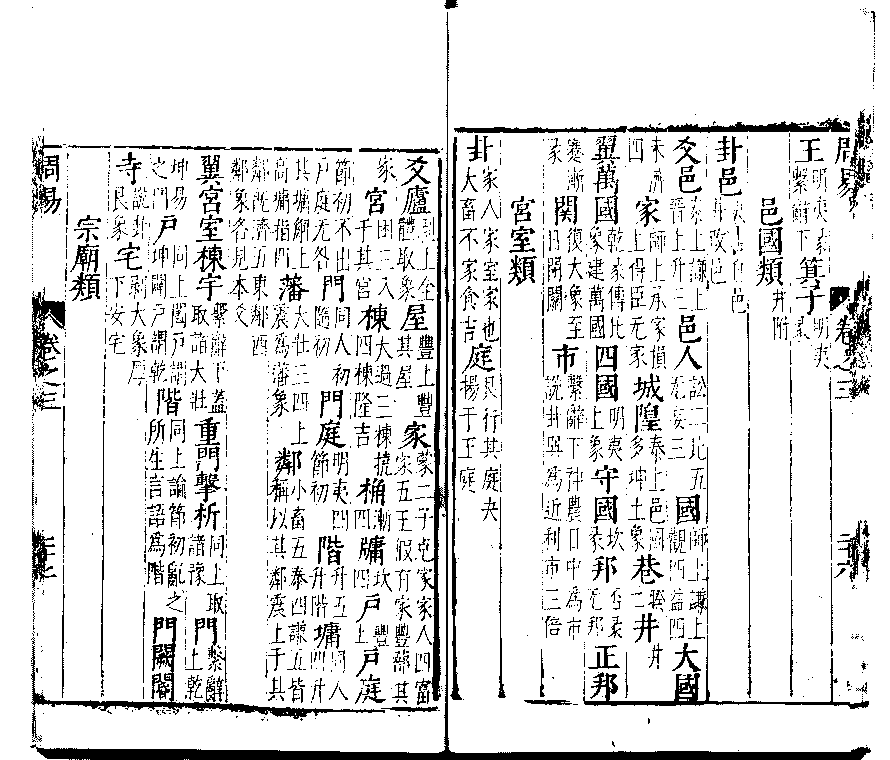 周易 卷之三 二十六
王 明夷彖 繫辭下 箕子 明夷 彖
邑國類 井附
卦邑 井改邑
爻邑 泰上謙上 晉上升三 邑人 訟二比五 无妄三 國 師上謙上 觀四益四 大國
未濟 四 家 師上承家損 上得臣无家 城隍 泰上邑 多坤土象 巷 睽 二 井 井
翼萬國 乾彖傳比 象建萬國 四國 明夷 上象 守國 坎 彖 邦 否彖 无邦 正邦
蹇漸 彖 關 復大象至 日閉關 市 繫辭下神農日中為市 說卦巽為近利市三倍
宮室類
卦 家人家室家也 大畜不家食吉 庭 艮行其庭夬 揚于王庭
爻廬 剝上全 體取象 屋 豐上豐 其屋 家 蒙二子克家家人四富 家五王假有家豐蔀其
家 宮 困三入 于其宮 棟 大過三棟撓 四棟隆吉 桷 漸 四 牖 坎 四 戶 豐 上 戶庭
節初不出 戶庭无咎 門 同人初 隨初 門庭 明夷四 節初 階 升五 升階 墉 同人 四升
其墉解上 高墉指四 藩 大壯三四上 震為藩象 鄰 小畜五泰四謙五皆 稱以其鄰震上于其
鄰既濟五東鄰西 鄰象各見本爻
翼宮室棟宇 繫辭下蓋 取諸大壯 重門擊柝 同上取 諸豫 門 繫辭 上乾
坤易 之門 戶 同上闔戶謂 坤闢戶謂乾 階 同上論節初亂之 所生言語為階 門闕閽
寺 說卦 艮象 宅 剝大象厚 下安宅
宗廟類
周易 卷之三 二十七